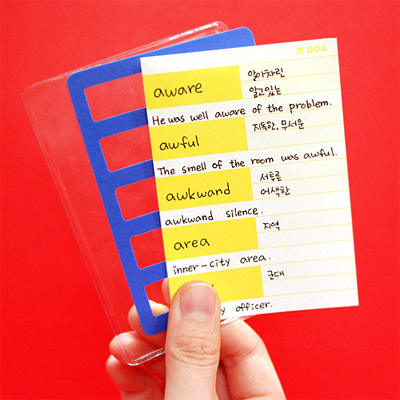 DOA
aware 알아차린
알고있는
He was well aware of the problem.
awful 지독한, 무서운
The smell of the room was awful.
awkwand 서투른
어색한
awkwand silence.
area 지역
inner-city area.
군대
officer.